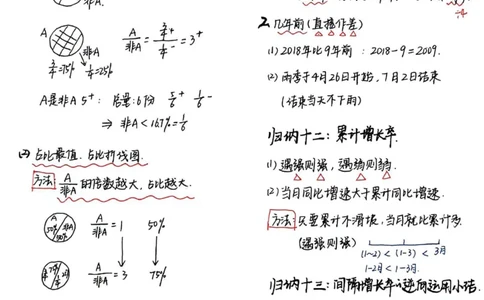 非A
A
非A
A/非A = 3/4+ / 1/4- = 3+
3/4=75% 1/4=25%
A是非A 5+： 总量:6份 5/6+ 1/6-
⇒ 非A<16.7%=1/6
占比最值. 占比折线图.
方法: A/非A 的倍数越大, 占比越大.
50% 非A 50% A/非A = 1 50%
A/非A = 3 75%
÷4
2. 几年前(直接作差)
(1) 2018年比9年前 : 2018-9=2009.
(2) 雨季于4月26日开始, 7月2日结束
(结束当天不下雨)
归纳十二: 累计增长率.
(1) 遇强则强, 遇弱则弱.
(2) 当月同比增速大于累计同比增速.
方法: 只要累计不滑坡, 当月就比累计多.
(遇强则强)
(1-2) < (1-3) < 3月
1-2月 < 1-3月.
归纳十三: 间隔增长率逆向运用小结.